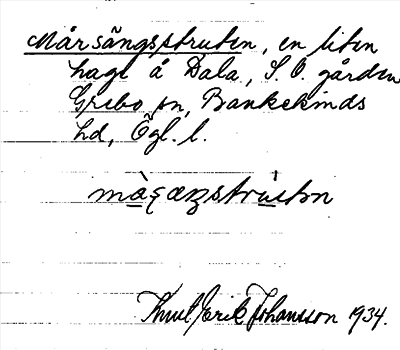 Mårsängsstruten, en liten
hage å Dala, S. O. gården
Grebo sn, Bankekinds
hd, Ögl. l.
Knut Erik Johansson 1934.